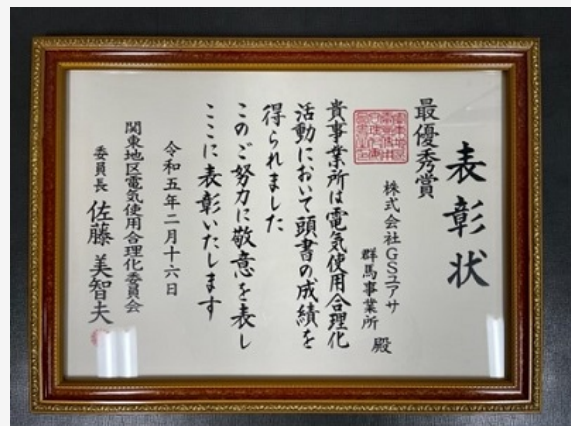 表彰状
最優秀賞
株式会社GSユアサ
群馬事業所 殿
貴事業所は電気使用合理化
活動において頭書の成績を
得られました
このご努力に敬意を表し
ここに表彰いたします
令和五年二月十六日
関東地区電気使用合理化委員会
委員長 佐藤 美智夫